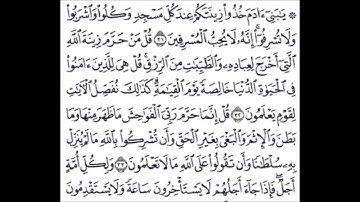 ۞ يَٰبَنِىٓ ءَادَمَ خُذُوا۟ زِينَتَكُمْ عِندَ كُلِّ مَسْجِدٍ وَكُلُوا۟ وَٱشْرَبُوا۟
وَلَا تُسْرِفُوٓا۟ إِنَّهُۥ لَا يُحِبُّ ٱلْمُسْرِفِينَ ٣١ قُلْ مَنْ حَرَّمَ زِينَةَ ٱللَّهِ
ٱلَّتِىٓ أَخْرَجَ لِعِبَادِهِۦ وَٱلطَّيِّبَٰتِ مِنَ ٱلرِّزْقِ قُلْ هِىَ لِلَّذِينَ ءَامَنُوا۟
فِى ٱلْحَيَوٰةِ ٱلدُّنْيَا خَالِصَةً يَوْمَ ٱلْقِيَٰمَةِ كَذَٰلِكَ نُفَصِّلُ ٱلْءَايَٰتِ
لِقَوْمٍ يَعْلَمُونَ ٣٢ قُلْ إِنَّمَا حَرَّمَ رَبِّىَ ٱلْفَوَٰحِشَ مَا ظَهَرَ مِنْهَا وَمَا
بَطَنَ وَٱلْإِثْمَ وَٱلْبَغْىَ بِغَيْرِ ٱلْحَقِّ وَأَن تُشْرِكُوا۟ بِٱللَّهِ مَا لَمْ يُنَزِّلْ
بِهِۦ سُلْطَٰنًا وَأَن تَقُولُوا۟ عَلَى ٱللَّهِ مَا لَا تَعْلَمُونَ ٣٣ وَلِكُلِّ أُمَّةٍ
أَجَلٌ فَإِذَا جَآءَ أَجَلُهُمْ لَا يَسْتَأْخِرُونَ سَاعَةً وَلَا يَسْتَقْدِمُونَ